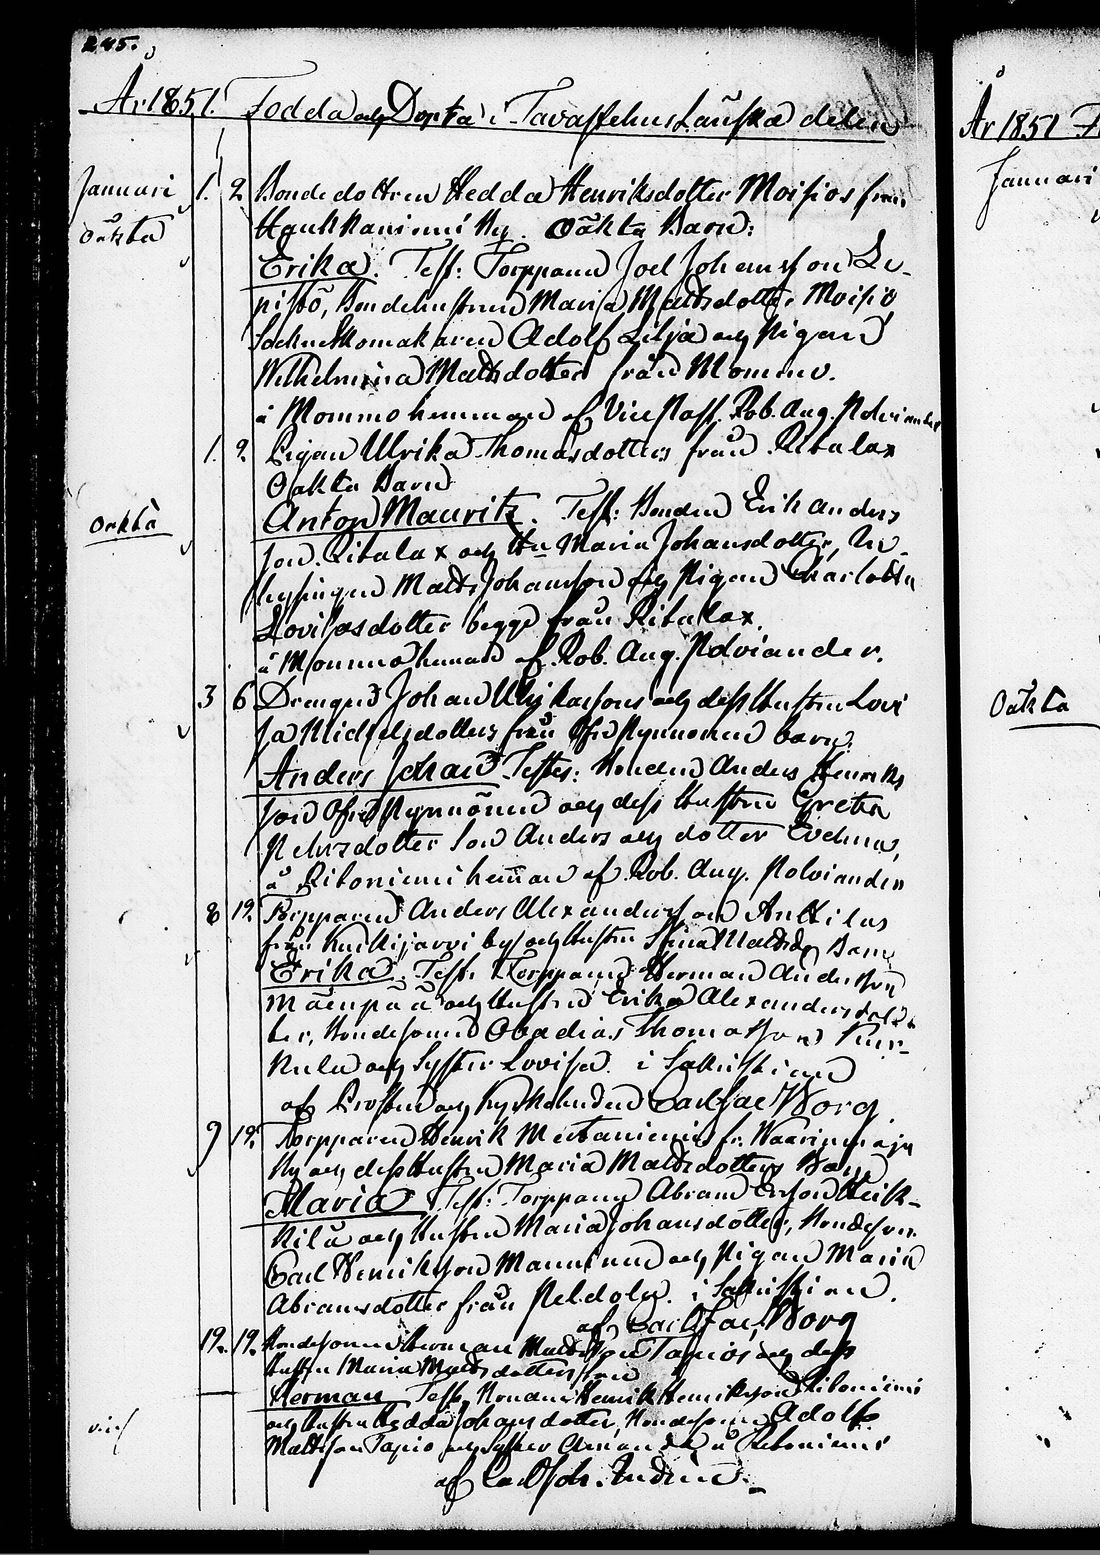 245.
År 1851. Födda och Döpta i Tavastehus Länska delen
Januari 1. 2 Bondedottren Hedda Henriksdotter Moisios från
oäkta Haukkaniemi By. Oäkta Barn:
Erika. Test: Torpparen Joel Johansson Le-
pistö, Bondehustrun Maria Mattsdotter Moisio
Sochneskomakaren Adolf Lilja och Pigan
Wilhelmina Mattsdotter från Mommo.
å Mommo hemman af Vice Past. Rob. Aug. Polviander
1. 2. Pigan Ulrika Thomasdotters från Ritalax
Oäkta Barn
Oäkta Anton Mauritz. Test: Bonden Erik Anders
son Ritalax och Hu Maria Johansdotter, In-
hysingen Matts Johansson och Pigan Charlotta
Lovisasdotter begge från Ritalax.
å Mommo heman af Rob. Aug. Polviander.
3 6 Drengen Johan Ulrikassons och dess Hustru Lovi
sa Michelsdotters från barn:
Anders Johan Testes: Bonden Anders Henriks
son och dess Hustru Greta
Pehrsdotter Son Anders och dotter Evelina,
å Ritoniemi heman af Rob. Aug. Polviander
8 19. Torpparen Anders Alexandersson Anttilas
från Kurkijärvi by och Hustru Stina Mattsdr Barn
Erika. Test: Torpparen Herman Andersson
Mäenpää och Hustrun Erika Alexandersdot
ter, Bondesonen Obadias Thomasson
och Syster Lovisa. i Sakristian
af Prosten och Kyrkoherden Carl Jac Borg.
9 19. Torpparen Henrik fr.
By och dess Hustru Maria Mattsdotters Barn
Maria Test: Torpparen Abram Ersson Heik-
kilä och Hustrun Maria Johansdotter, Bondeson
Carl Henriksson Manninen och Pigan Maria
Abramsdotter från Peldola. i Sakristian.
af Carl Jac. Borg
19. 19. Bondesonen Herman Mattsson Tapios och dess
Hustru Maria Mattsdotters son
Herman Test. Bonden Henrik Henriksson Ritoniemi
och Hustru Hedda Johansdotter, Bondesonen Adolf
Mattsson Tapio och Syster Amanda å Ritoniemi
af Carl Joh.
År 1851
Januari
Oäkta